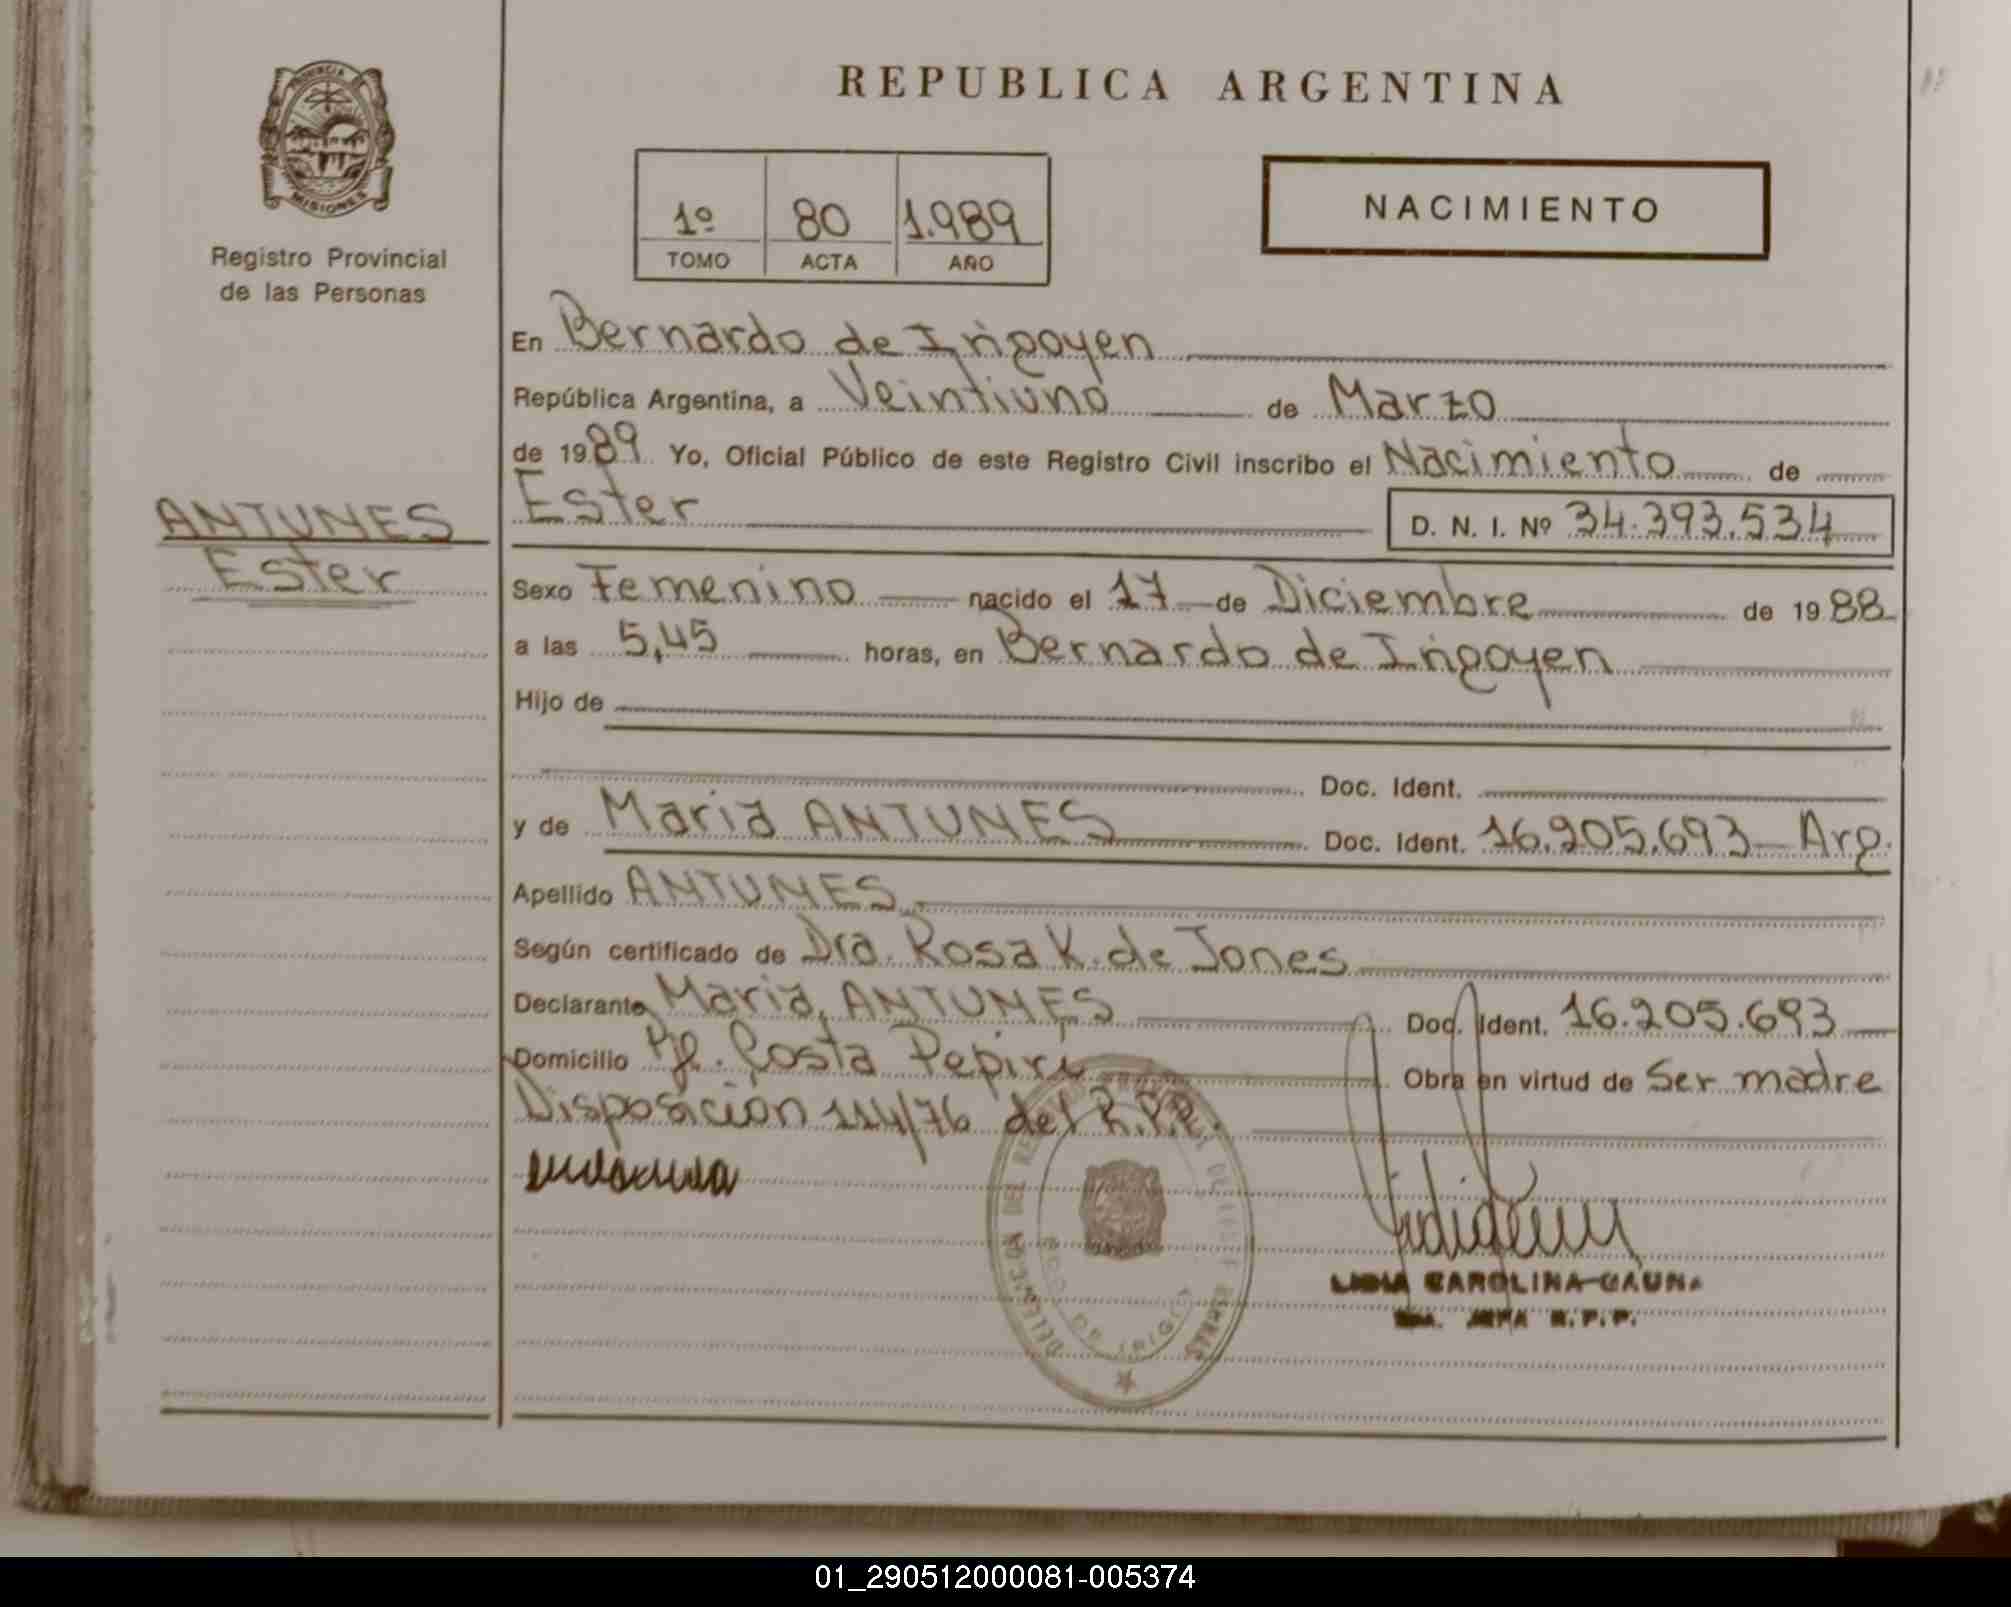 REPUBLICA ARGENTINA
PROVINCIA DE
MISIONES
Registro Provincial
de las Personas
1º 80 1.989
TOMO ACTA AÑO
NACIMIENTO
En Bernardo de Irigoyen
República Argentina, a Veintiuno de Marzo
de 1989 Yo, Oficial Público de este Registro Civil inscribo el Nacimiento de
Ester D. N. I. Nº 34.393.534
ANTUNES
Ester
Sexo Femenino nacido el 17 de Diciembre de 1988
a las 5,45 horas, en Bernardo de Irigoyen
Hijo de
Doc. Ident.
y de Maria ANTUNES Doc. Ident. 16.205.693 Arg.
Apellido ANTUNES
Según certificado de Dra. Rosa K. de Jones
Declarante Maria ANTUNES Doc. Ident. 16.205.693
Domicilio Costa Pepiri Obra en virtud de Ser madre
Disposición 114/76 del R.P.P.
LIDIA CAROLINA GAUNA
JEFA R.P.P.
01_290512000081-005374